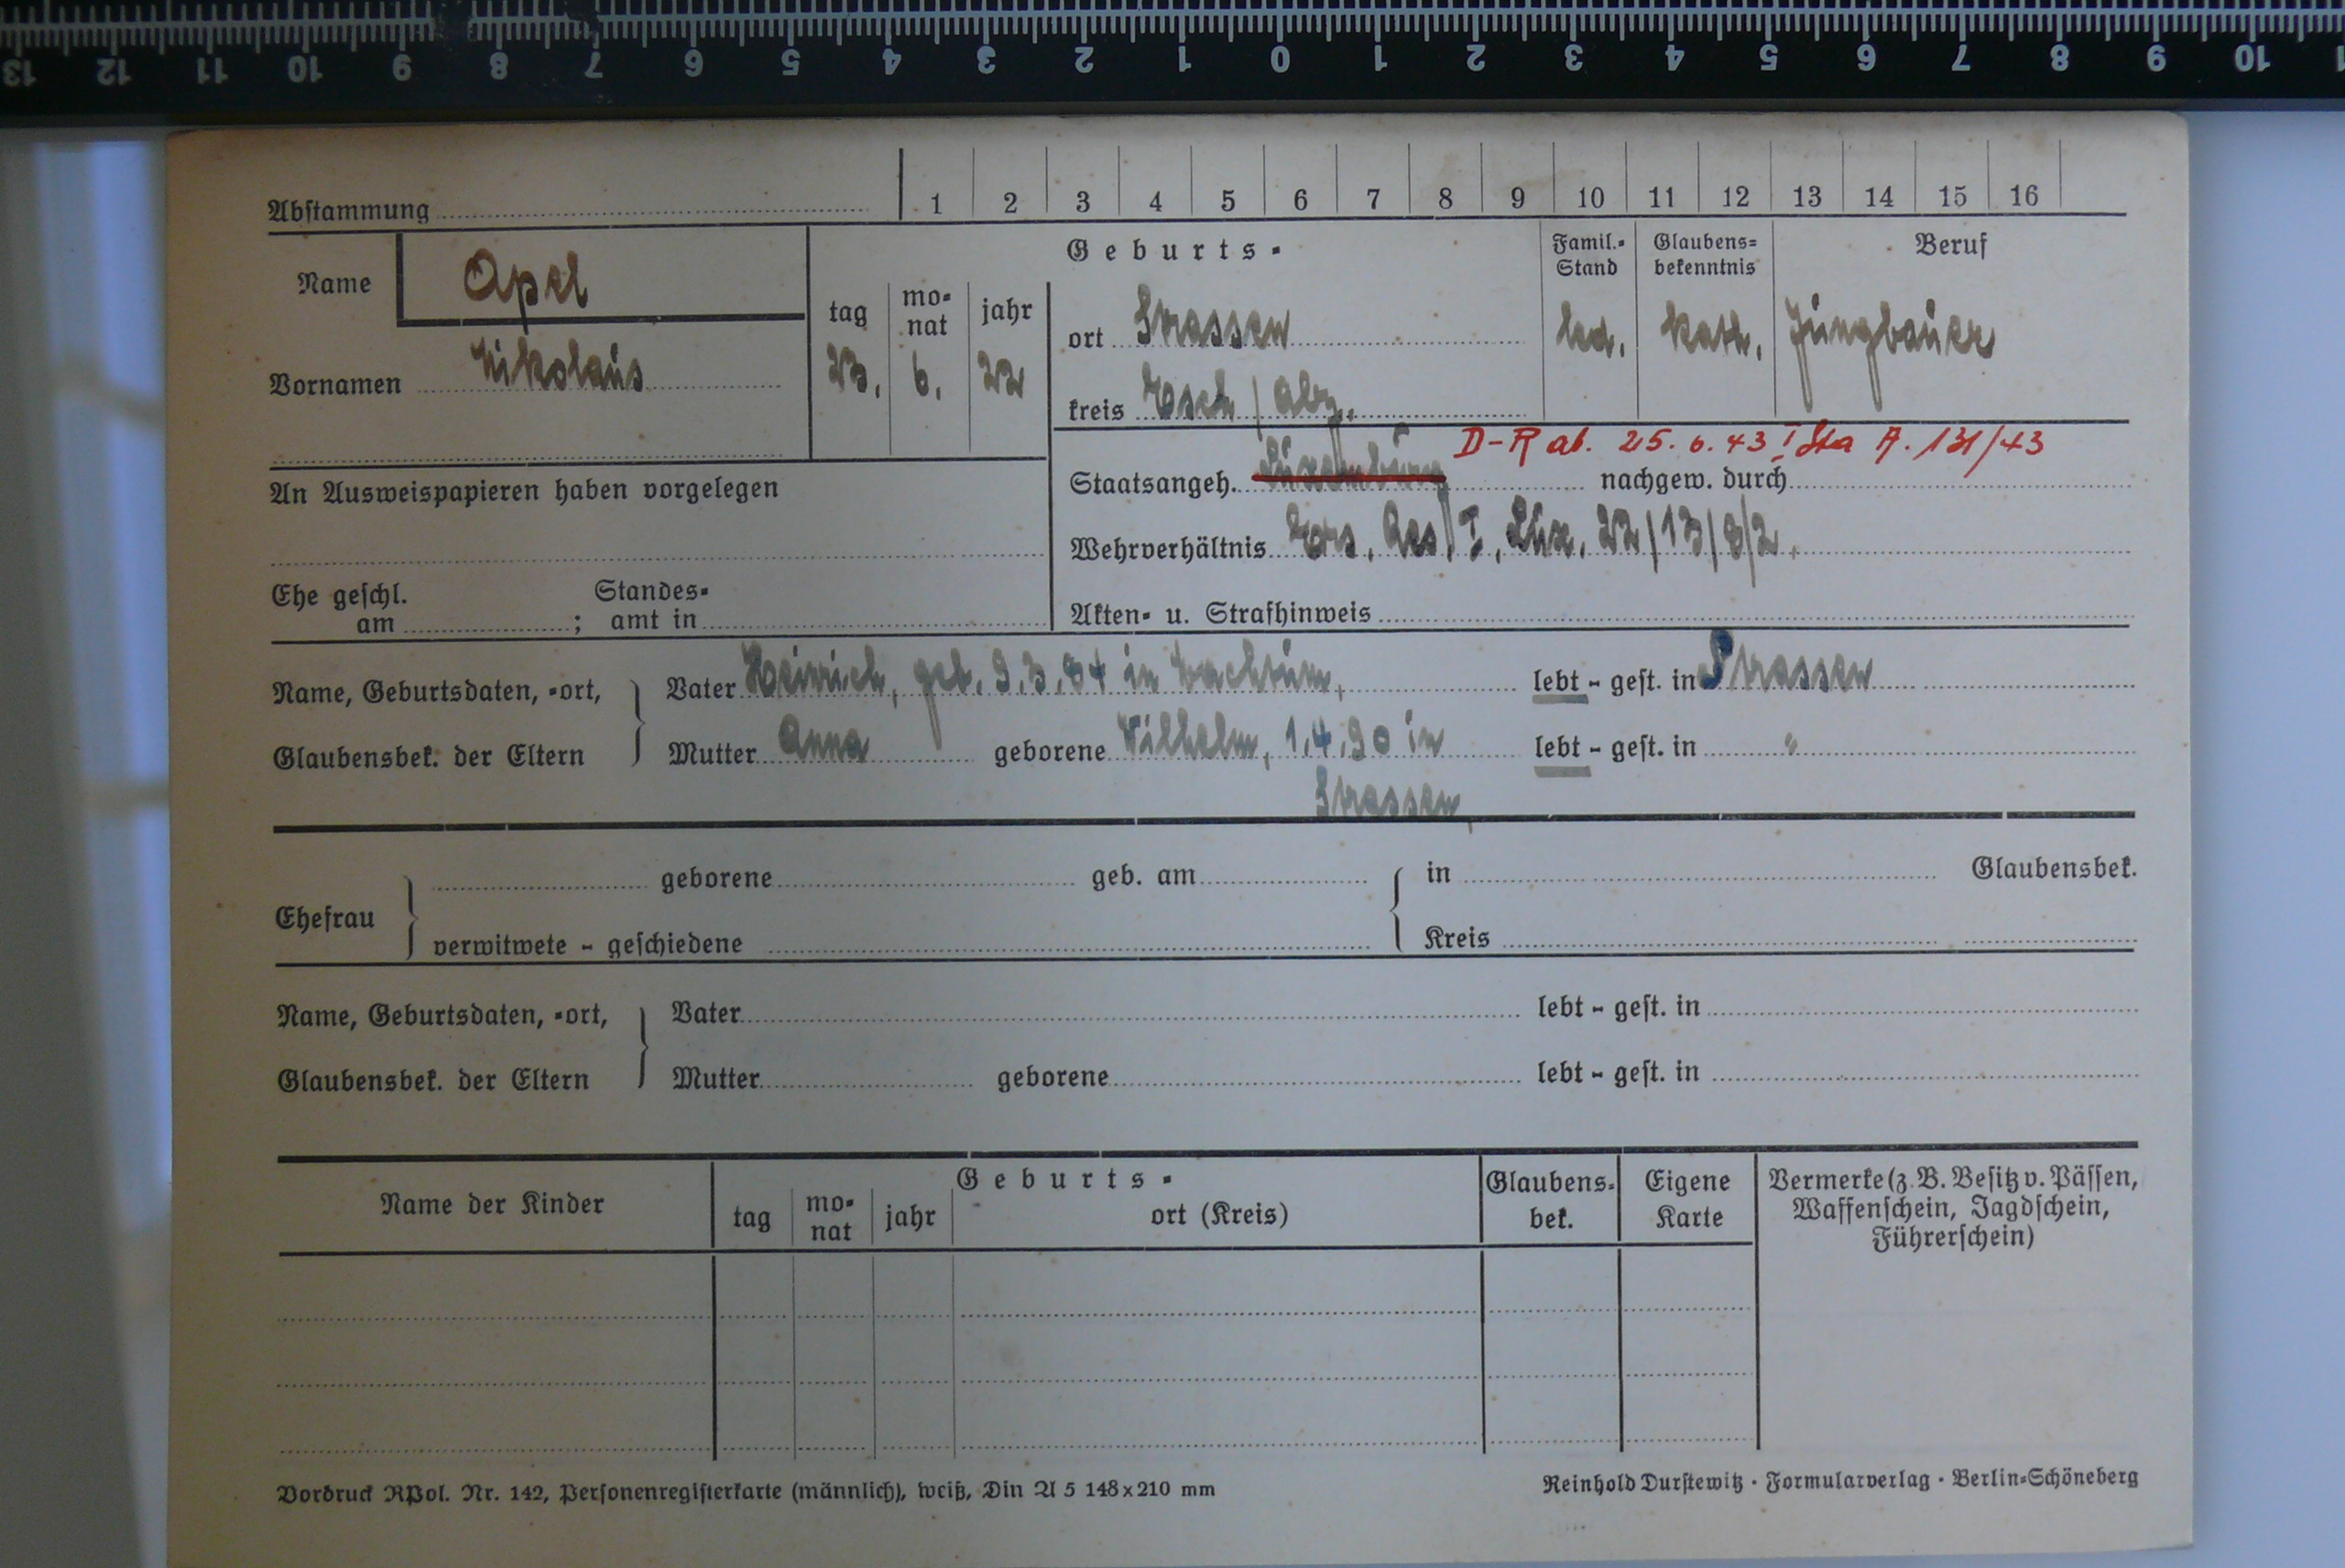 13 12 11 10 9 8 7 6 5 4 3 2 1 0 1 2 3 4 5 6 7 8 9 10
Abstammung 1 2 3 4 5 6 7 8 9 10 11 12 13 14 15 16
Name Apel
Vornamen Nikolaus
Geburts-
tag mo- nat jahr
23. 6. 22
ort Strassen
kreis Esch / Alz.
Famil.- Stand
led.
Glaubens- bekenntnis
kath.
Beruf
Jungbauer
D-R ab. 25.6.43 I Sta A. 131/43
Staatsangeh. Luxemburg nachgew. durch
An Ausweispapieren haben vorgelegen
Wehrverhältnis Ers. Res. I, Lux. 22/13/8/2.
Ehe geschl. am ; Standes- amt in
Akten- u. Strafhinweis
Name, Geburtsdaten, -ort, Vater Heinrich, geb. 9.3.84 in lebt - gest. in Strassen
Glaubensbek. der Eltern Mutter Anna geborene Wilhelm, 1.4.90 in lebt - gest. in "
Strassen
Ehefrau geborene geb. am in Glaubensbek.
verwitwete - geschiedene Kreis
Name, Geburtsdaten, -ort, Vater lebt - gest. in
Glaubensbek. der Eltern Mutter geborene lebt - gest. in
Name der Kinder
Geburts-
tag mo- nat jahr ort (Kreis)
Glaubens- bek.
Eigene Karte
Vermerke (z. B. Besitz v. Pässen,
Waffenschein, Jagdschein,
Führerschein)
Vordruck RPol. Nr. 142, Personenregisterkarte (männlich), weiß, Din A 5 148 x 210 mm
Reinhold Durstewitz · Formularverlag · Berlin-Schöneberg